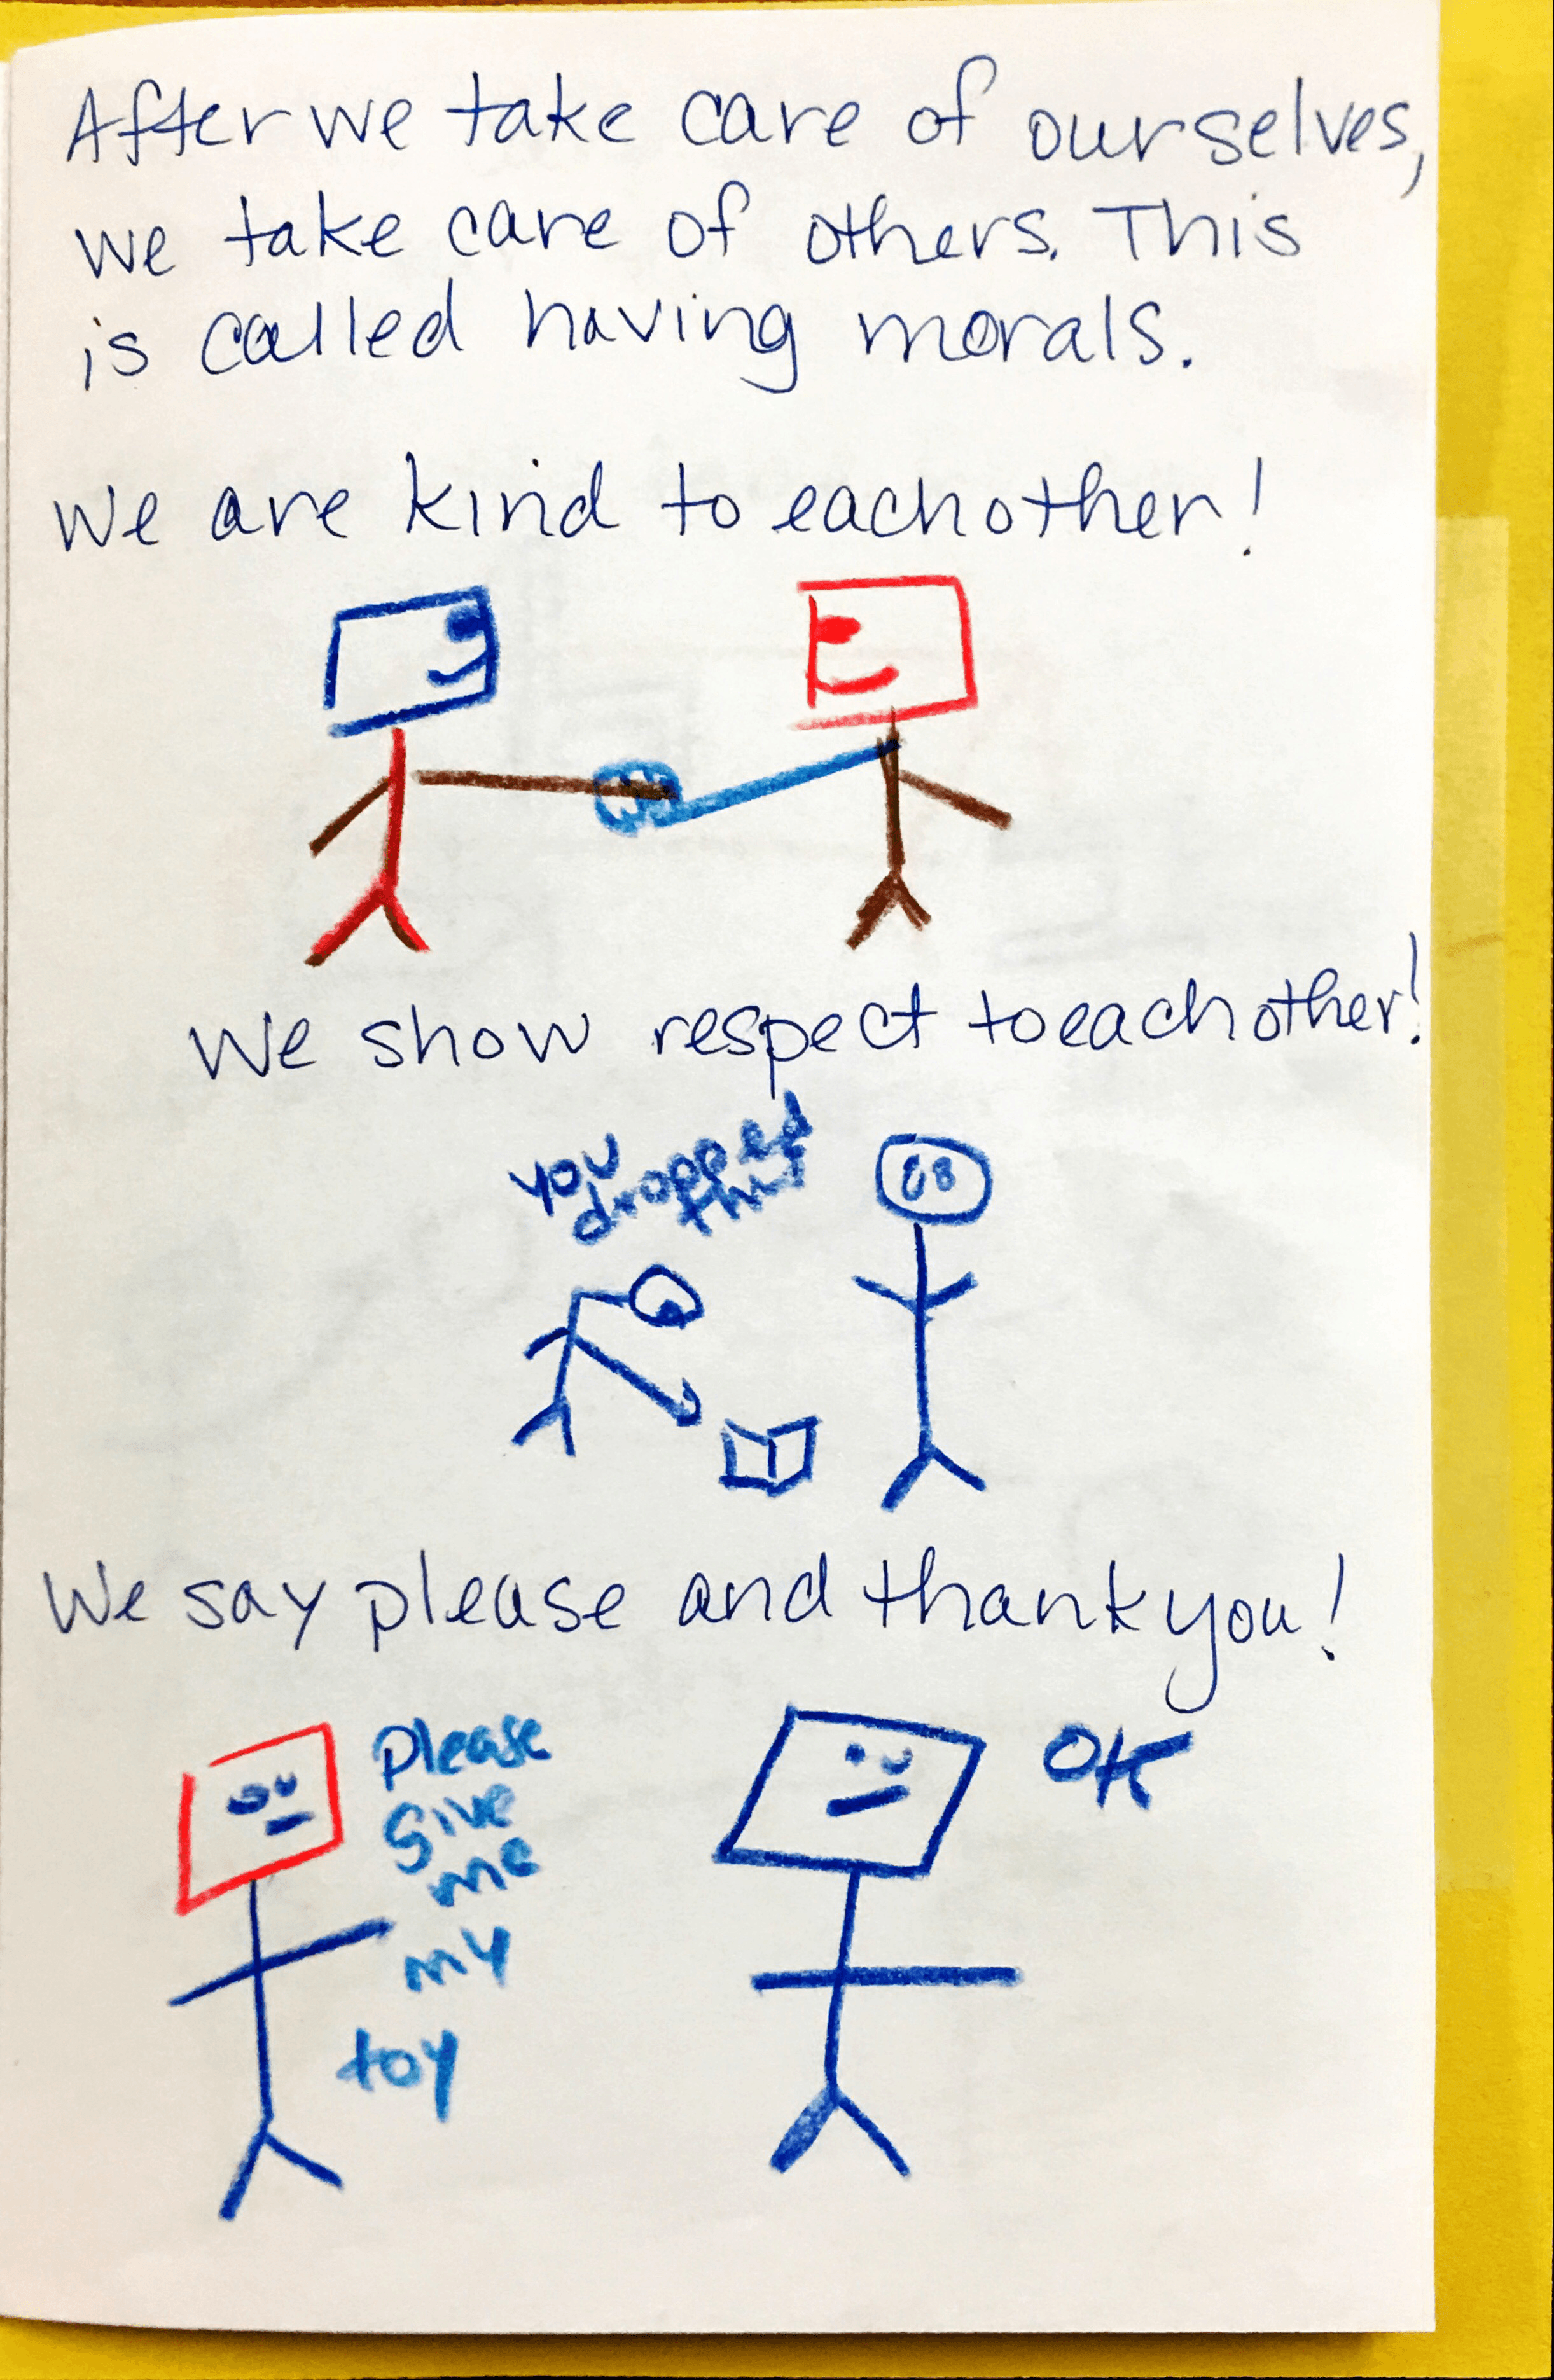 After we take care of ourselves,
we take care of others. This
is called having morals.
We are kind to eachother!
We show respect to eachother!
you
dropped
this
We say please and thank you!
Please
give
me
my
toy
OK